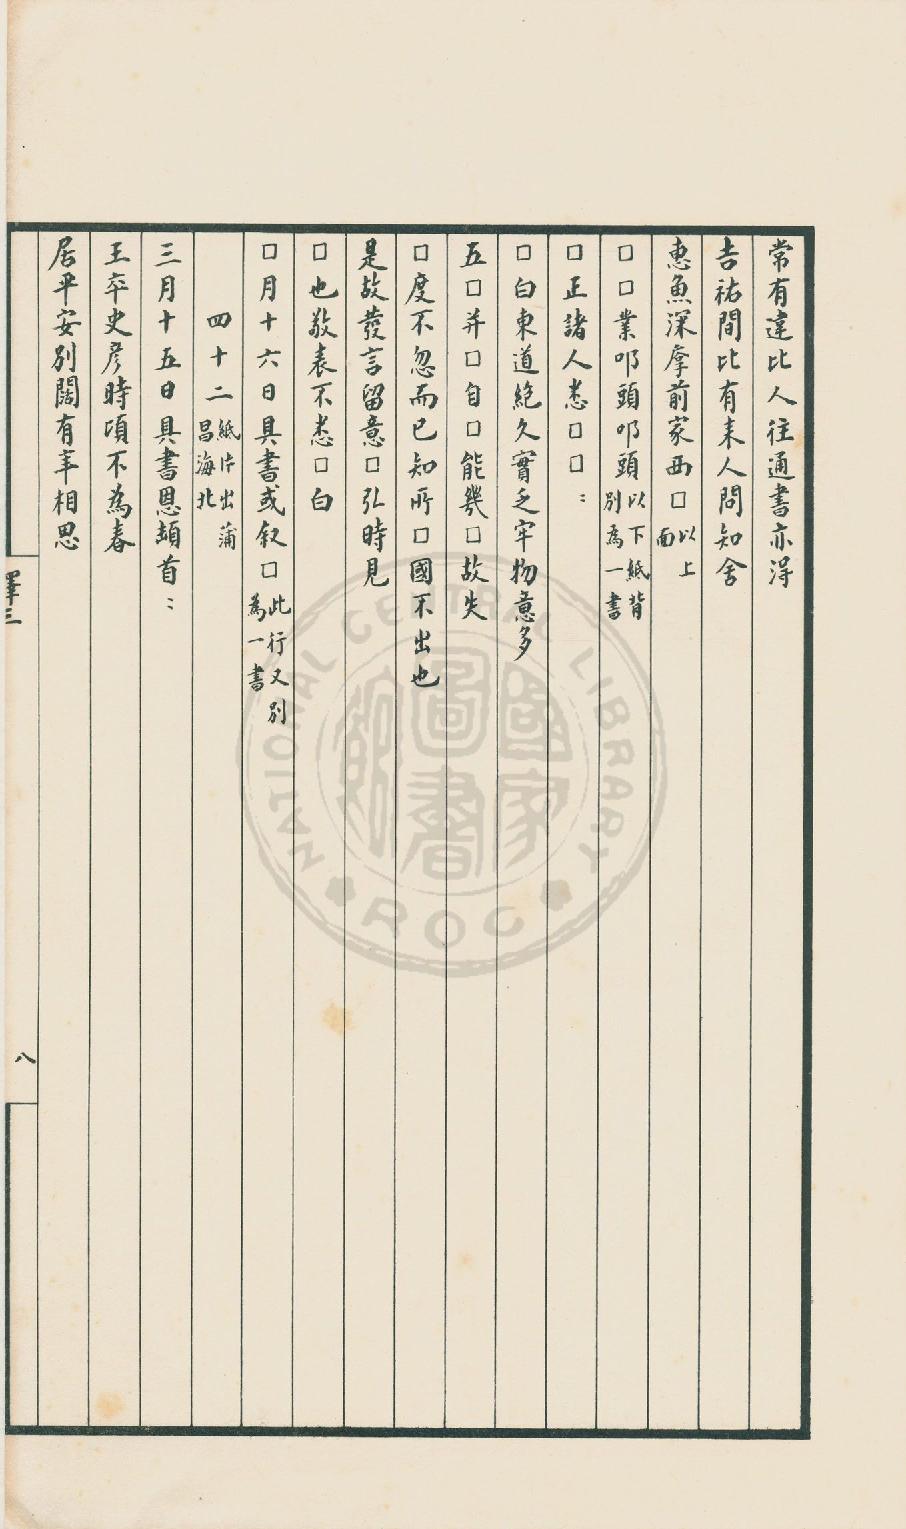 常有違比人往通書亦淂
吉祐間比有来人問知舍
惠魚深㧱前家西□以上面
□□業叩頭叩頭以下紙背別為一書
□正諸人悉□□：
□白東道絕久實乏牢物意多
五□并□自□能幾□故失
□度不忽而已知所□國不出也
是故發言留意□弘時見
□也敬表不悉□白
□月十六日具書或叙□此行又別為一書
四十二紙片出蒲昌海北
三月十五日具書恩頓首：
王卒史彦時頃不為春
居平安別闊有年相思
釋三
八
國家圖書館
NATIONAL CENTRAL LIBRARY
ROC